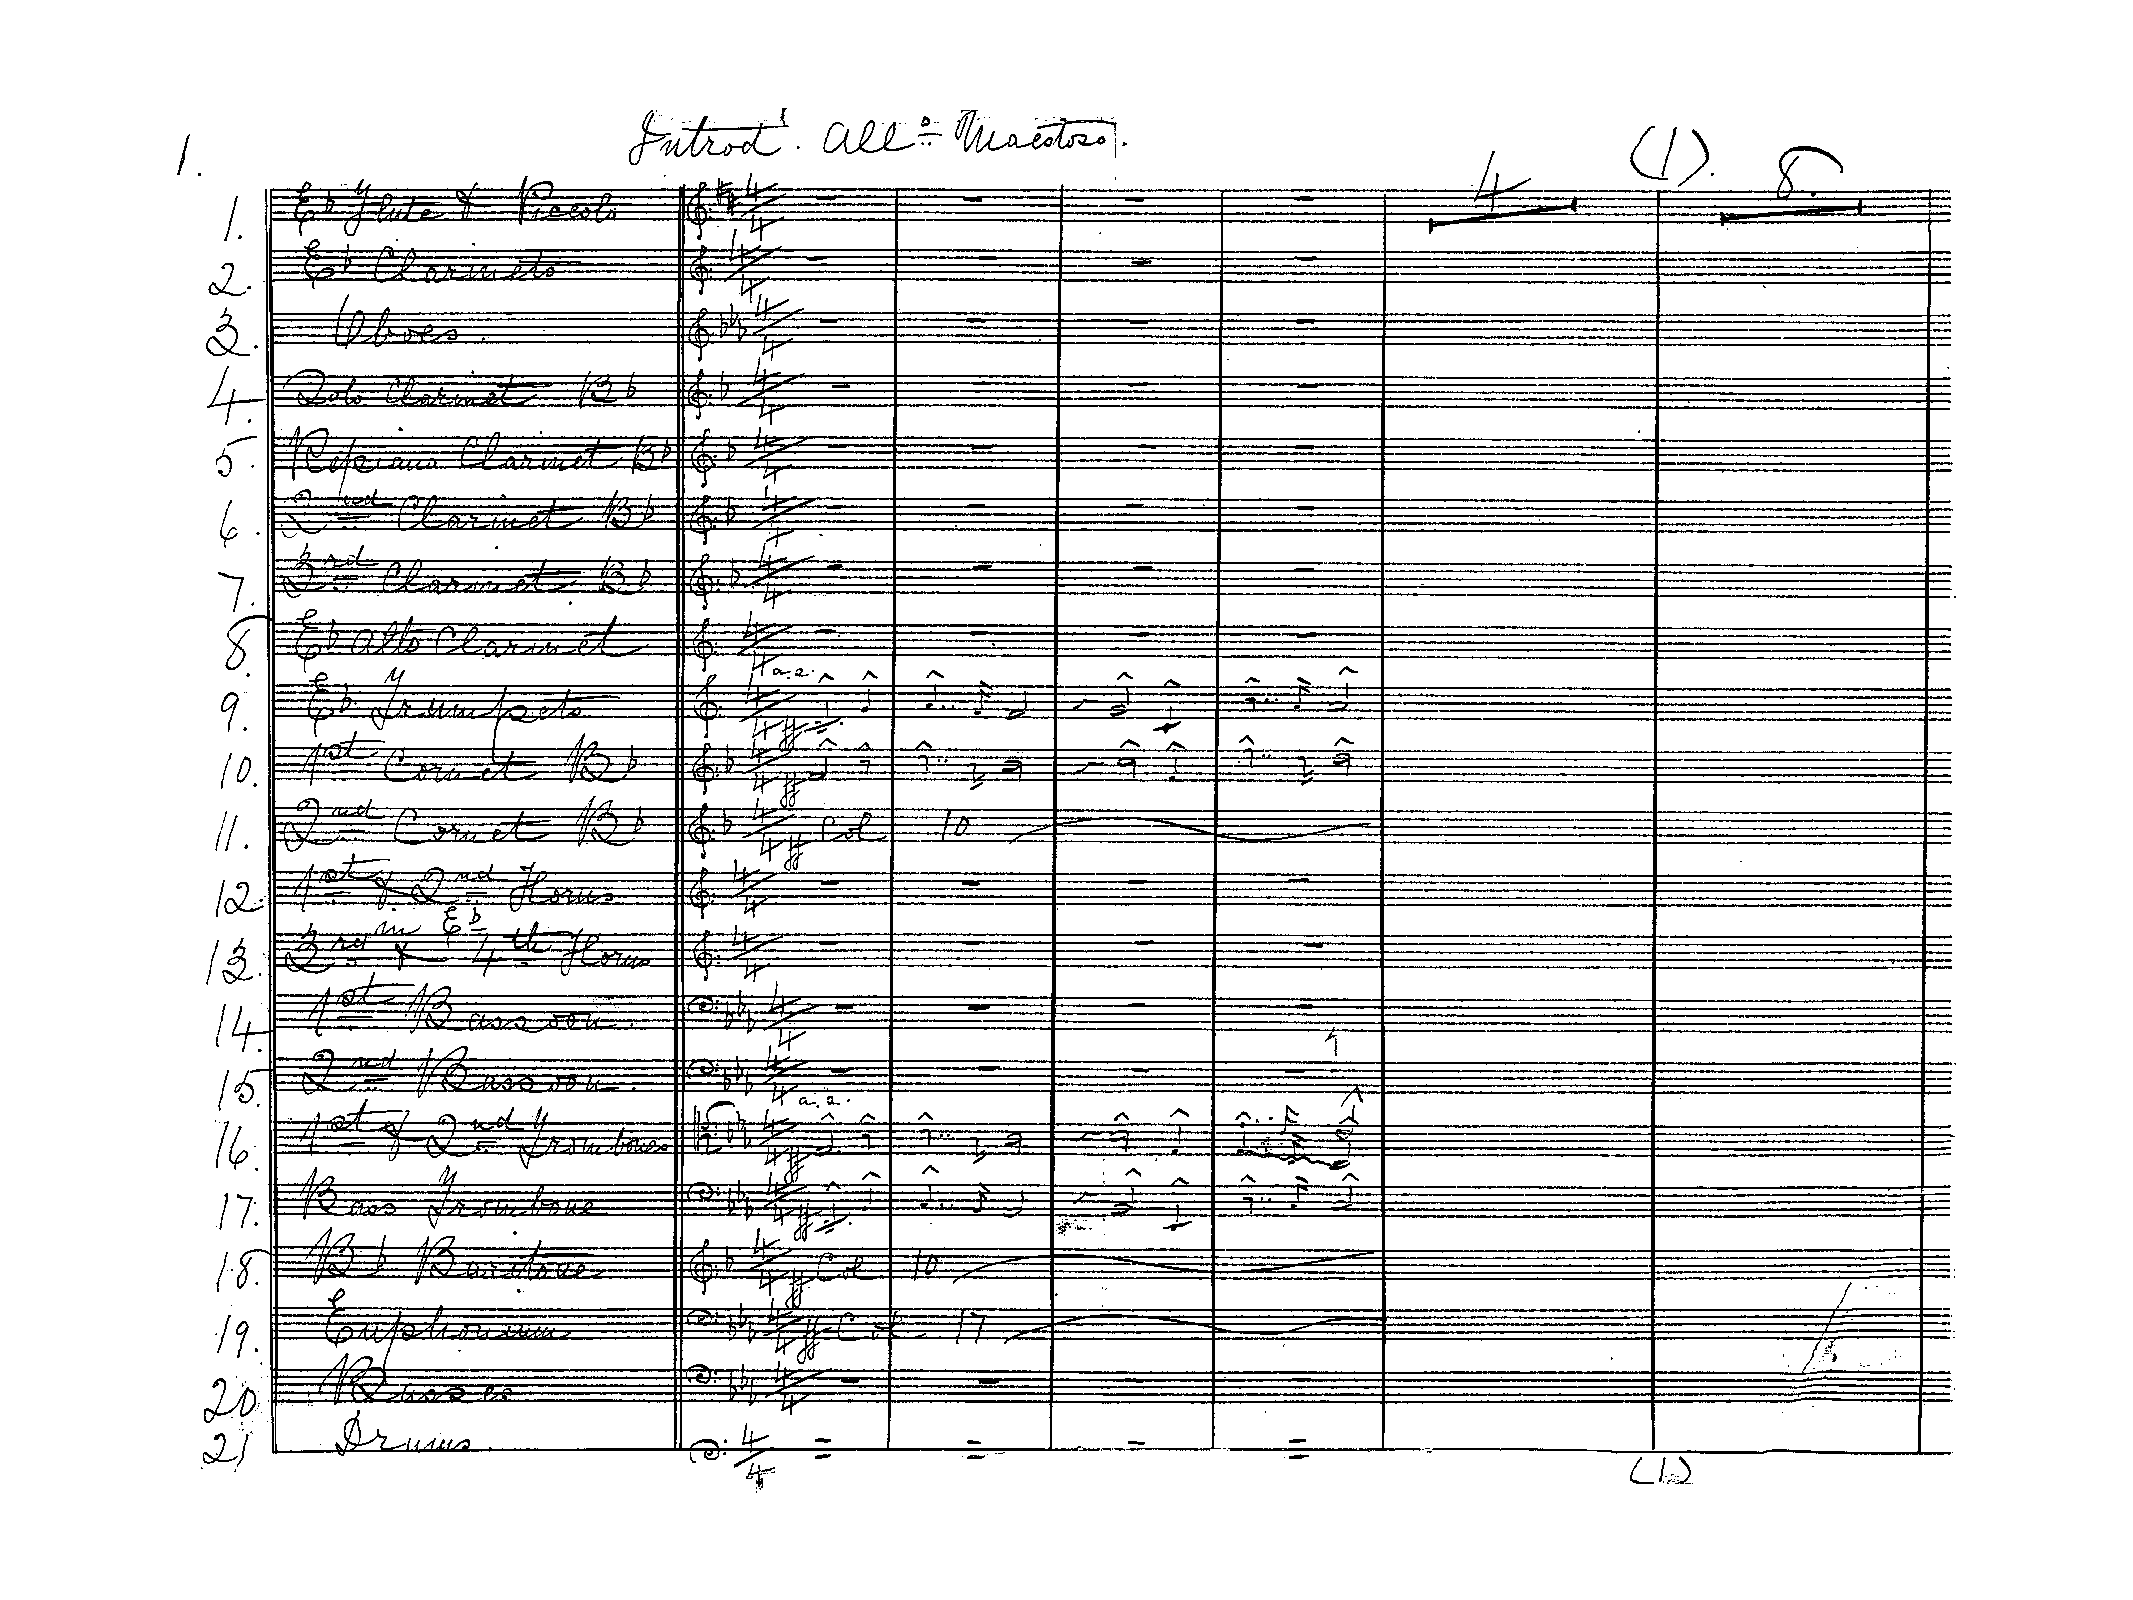 1. Introd. All° Maestoso. (1).
4 8.
1. E♭ Flute & Piccolo 4/4
2. E♭ Clarinets 4/4
3. Oboes. 4/4
4. Solo Clarinet B♭ 4/4
5. Repiano Clarinet B♭ 4/4
6. 2nd Clarinet B♭ 4/4
7. 3rd Clarinet B♭ 4/4
8. E♭ Alto Clarinet 4/4
9. E♭ Trumpets 4/4 a.2. ff
10. 1st Cornet B♭ 4/4 ff
11. 2nd Cornet B♭ 4/4 ff Col 10
12. 1st & 2nd Horns 4/4
in E♭
13. 3rd & 4th Horns 4/4
14. 1st Bassoon. 4/4
15. 2nd Bassoon. 4/4
16. 1st & 2nd Trombones 4/4 a.2. ff
17. Bass Trombone 4/4 ff
18. B♭ Baritone 4/4 ff Col 10
19. Euphonium 4/4 ff Col 17
20. Basses 4/4
21 Drums. 4/4
(1)